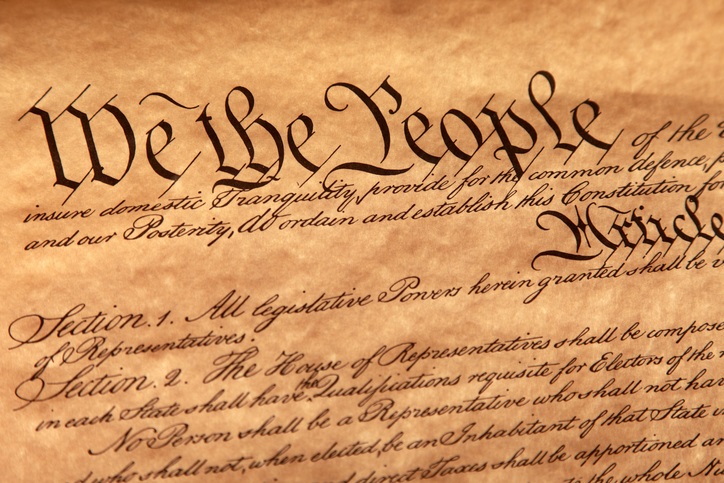 We the People of the
insure domestic Tranquility, provide for the common defence,
and our Posterity, do ordain and establish this Constitution for
Article
Section. 1. All legislative Powers herein granted shall be
of Representatives.
Section. 2. The House of Representatives shall be compose
in each State shall have the Qualifications requisite for Electors of the
No Person shall be a Representative who shall not have
who shall not, when elected, be an Inhabitant of that State
direct Taxes shall be apportioned
the whole Nu